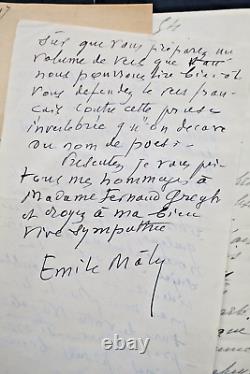 sais que vous préparez un
volume de vers que
nous pourrons lire bientôt
Vous défendez le vers fran
çais contre cette prose
invertébrée qu'on décore
du nom de poésie.
Présentez, je vous prie
tous mes hommages à
Madame Fernand Gregh
et croyez à ma bien
vive sympathie
Emile Mâle